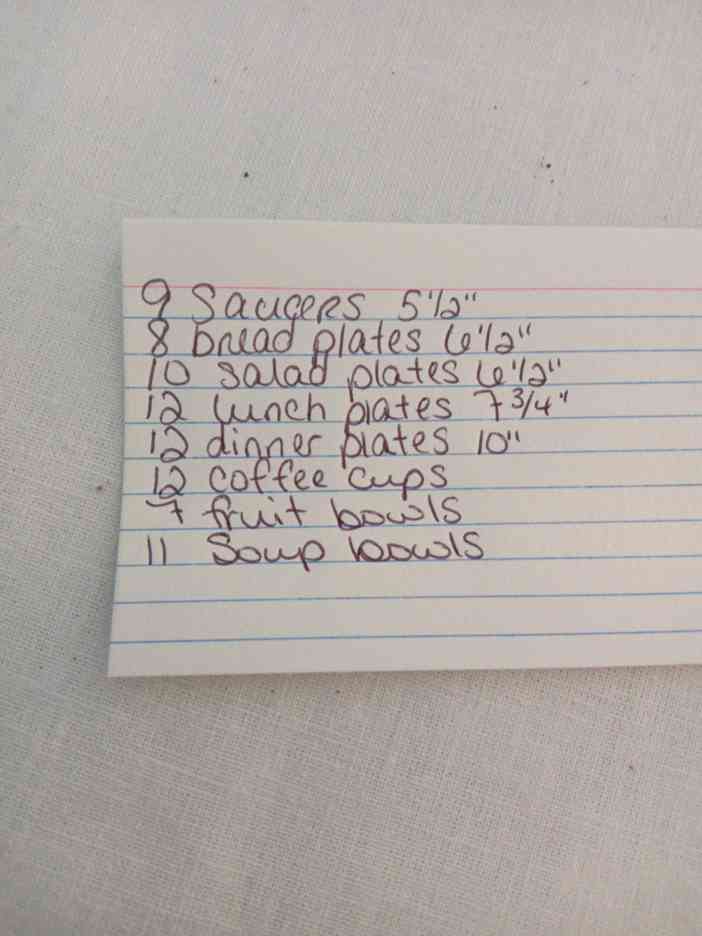 9 Saucers 5 1/2"
8 bread plates 6 1/2"
10 salad plates 6 1/2"
12 lunch plates 7 3/4"
12 dinner plates 10"
12 coffee cups
7 fruit bowls
11 Soup bowls